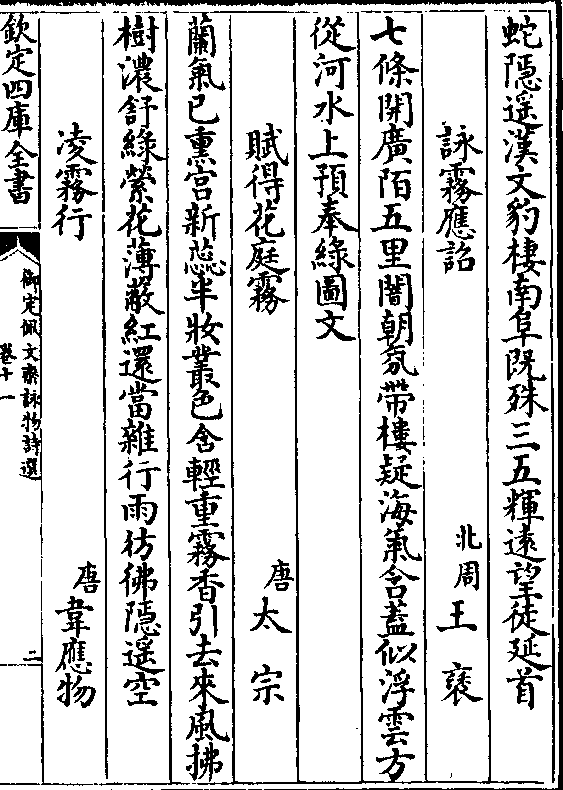 蛇隱遥漢文豹棲南阜既殊三五輝遠望徒延首
詠霧應詔　北周王襃
七條開廣陌五里闇朝氛帶樓疑海氣含蓋似浮雲方
從河水上預奉綠圖文
賦得花庭霧　唐太宗
蘭氣已熏宫新蕊半妝叢色含輕重霧香引去來風拂
樹濃舒綠縈花薄蔽紅還當雜行雨彷彿隱遥空
凌霧行　唐韋應物
欽定四庫全書
御定佩文齋詠物詩選
卷十一
二